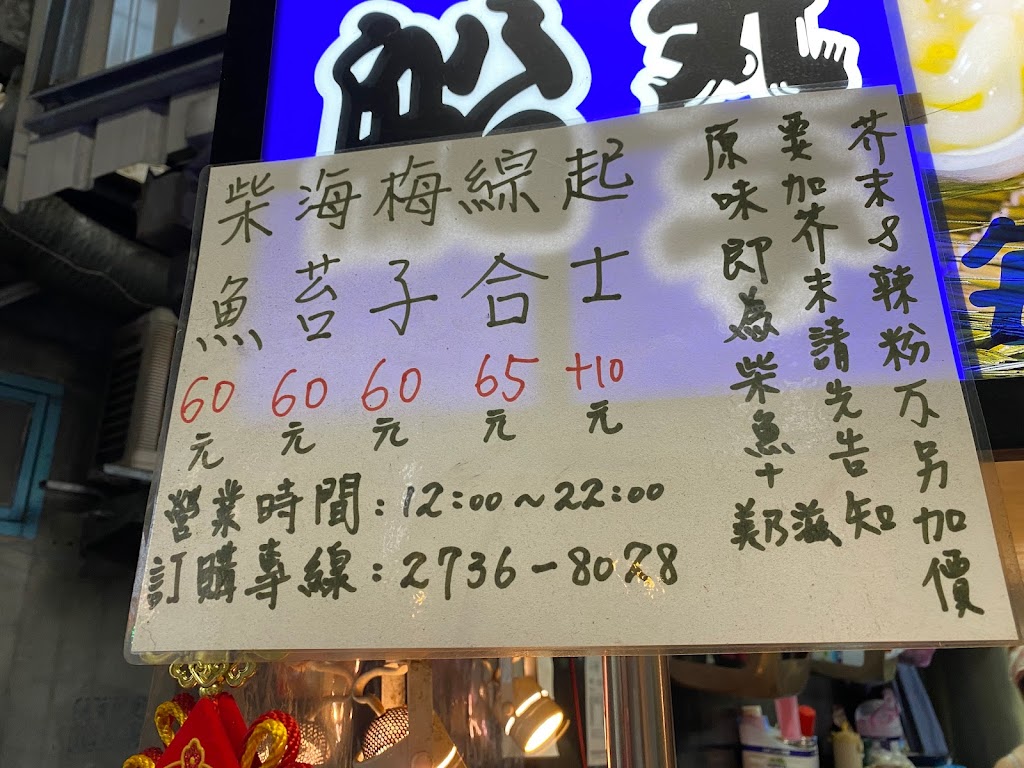 柴魚 60元
海苔 60元
梅子 60元
綜合 65元
起士 +10元
芥末&辣粉不另加價
要加芥末請先告知
原味即為柴魚+美乃滋
營業時間:12:00~22:00
訂購專線:2736-8028